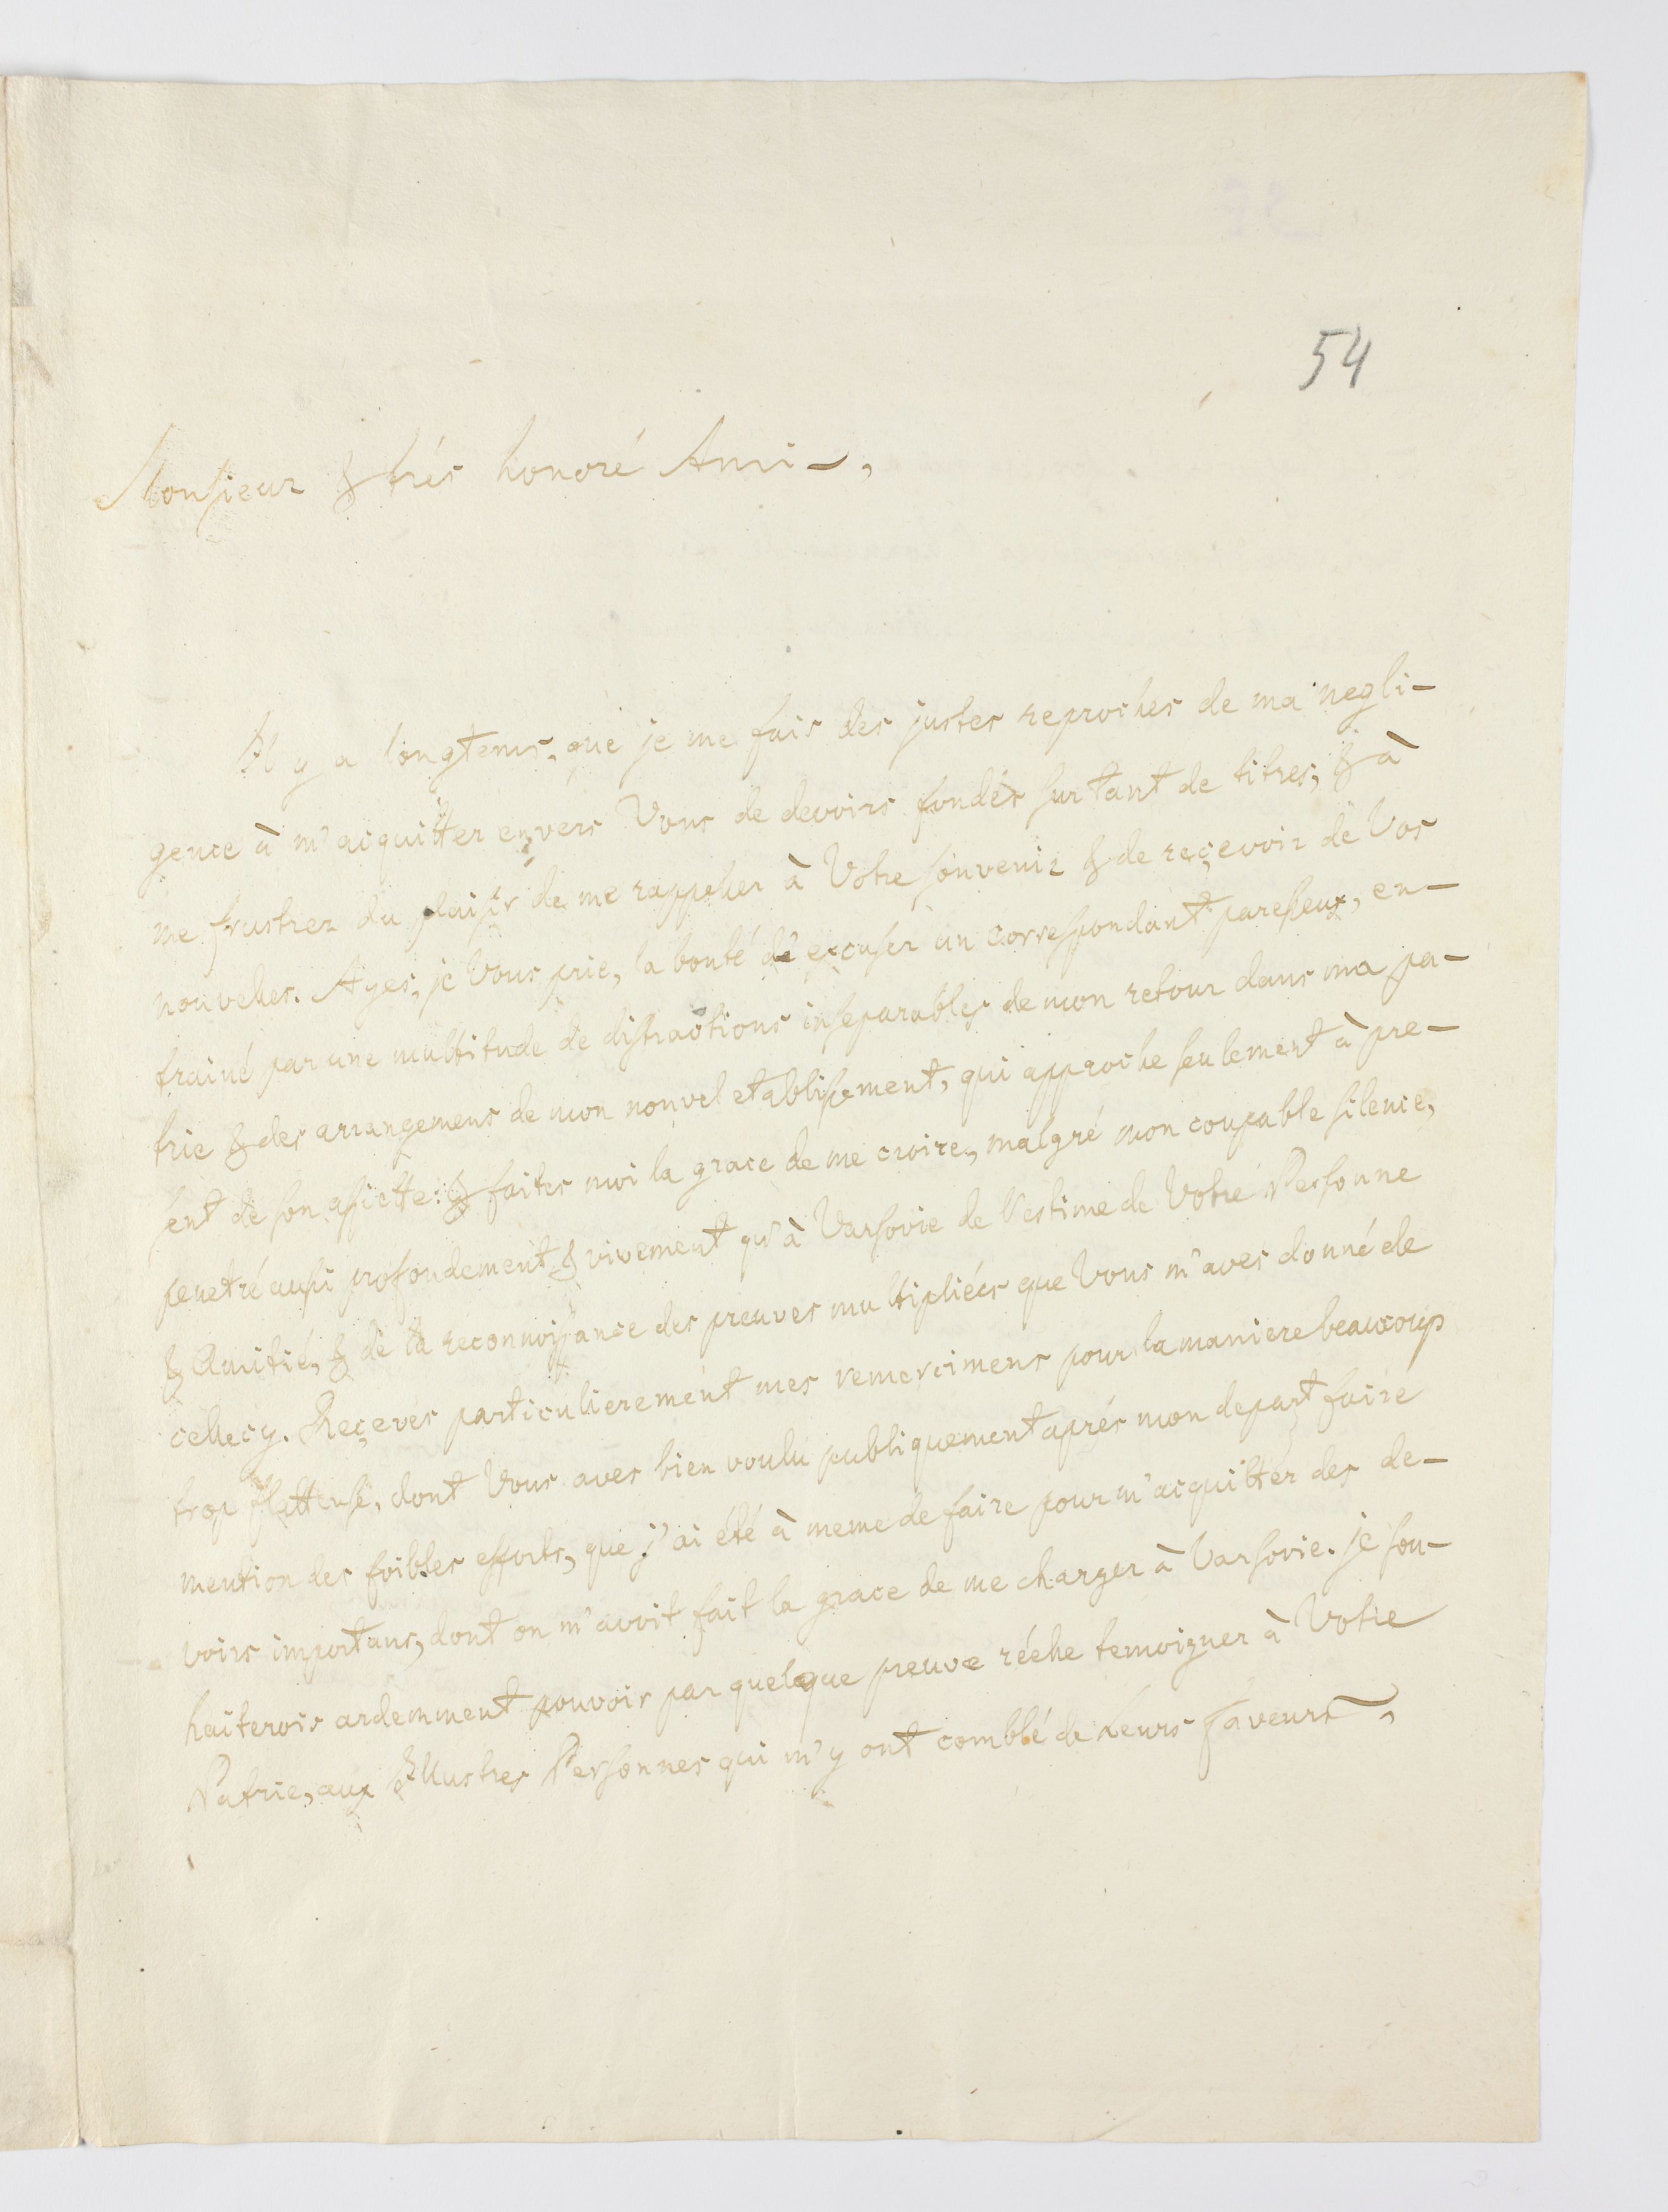 54
Monsieur & trés honoré Ami –,
Il y a longtems, que je me fais des justes reproches de ma negli–
gence à m'acquitter envers Vous de devoirs fondés sur tant de titres, & à
me frustrer du plaisir de me rappeller à Votre souvenir & de reçevoir de Vos
nouvelles. Ayes, je Vous prie, la bonté d'excuser un correspondant paresseux, en–
trainé par une multitude de distractions inseparables de mon retour dans ma pa–
trie & des arrangemens de mon nouvel etablissement, qui approche seulement à pre–
sent de son assiette: & faites moi la grace de me croire, malgré mon coupable silence,
penetré aussi profondement & vivement qu'à Varsovie de l'estime de Votre Personne
& Amitié, & de la reconnoissance des preuves multipliées que Vous m'aves donné de
cellecy. Reçeves particulierement mes remercimens pour la maniere beaucoup
trop flatteuse, dont Vous aves bien voulu publiquement aprés mon depart faire
mention des foibles efforts, que j'ai été à meme de faire pour m'acquitter des de–
voirs importans, dont on m'avoit fait la grace de me charger à Varsovie. je sou–
haiterois ardemment pouvoir par quelque preuve réelle temoigner à Votre
Patrie, aux Illustres Personnes qui m'y ont comblé de Leurs faveurs –,